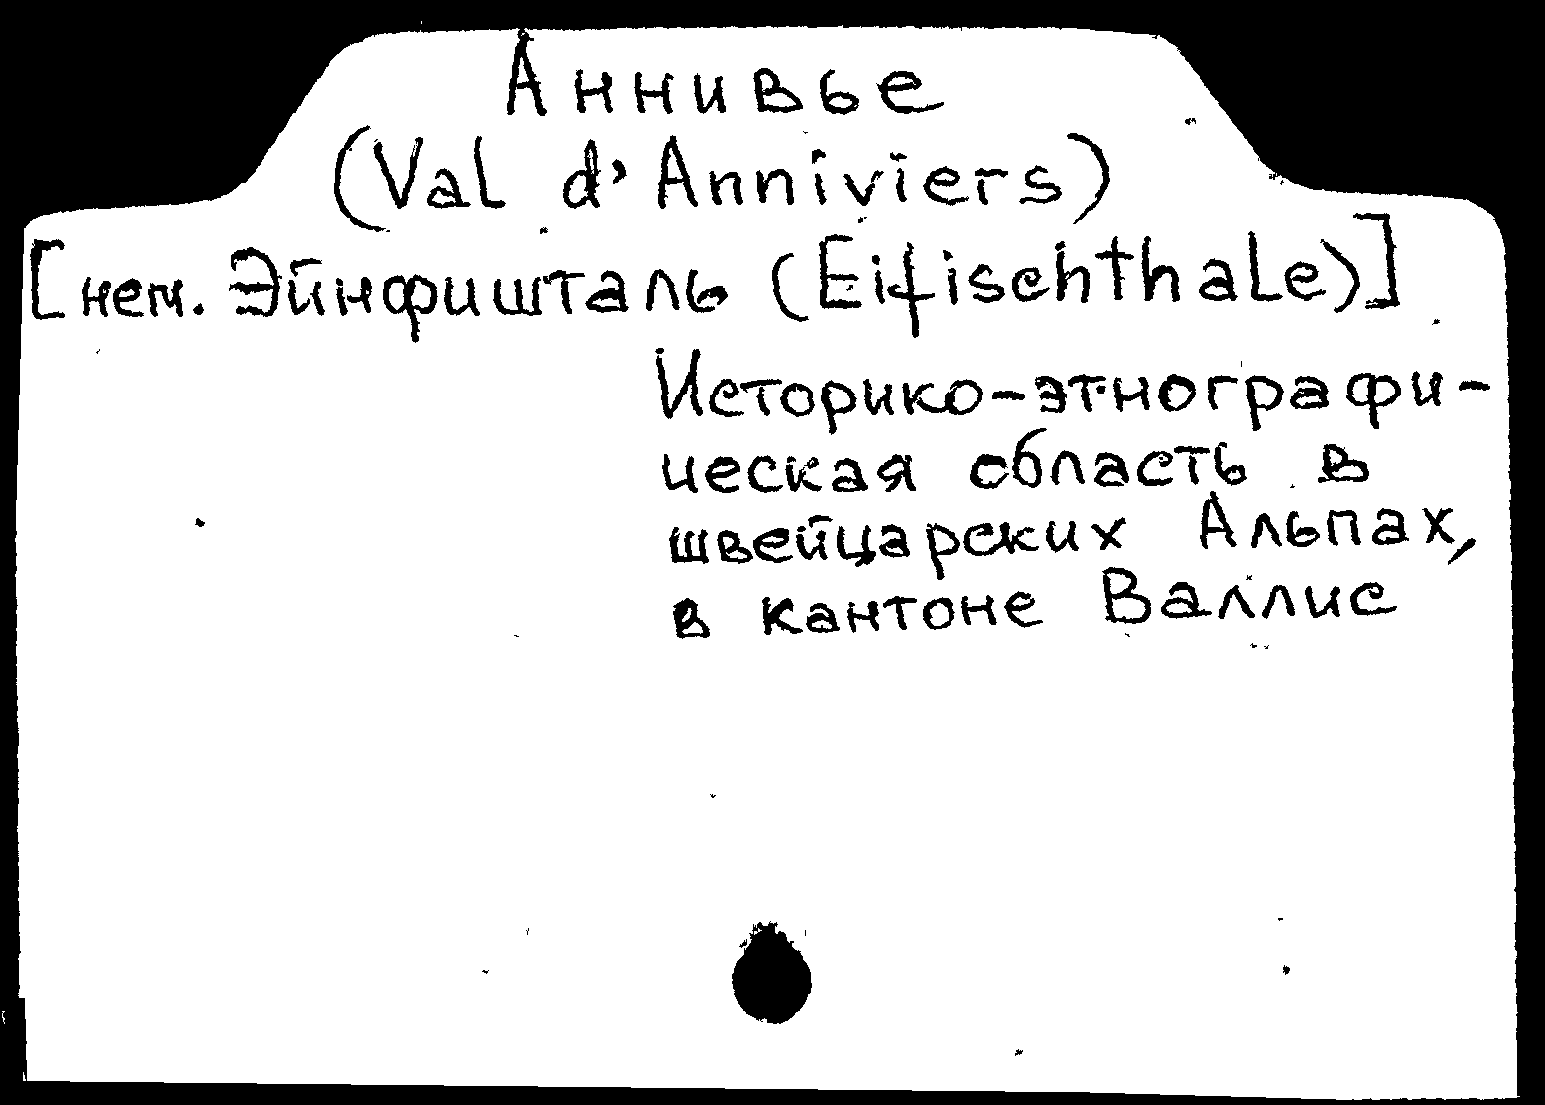 Аннивье
(Val d'Anniviers)
[нем. Эйнфишталь (Eifischthale)]
Историко-этнографи-
ческая область в
швейцарских Альпах,
в кантоне Валлис